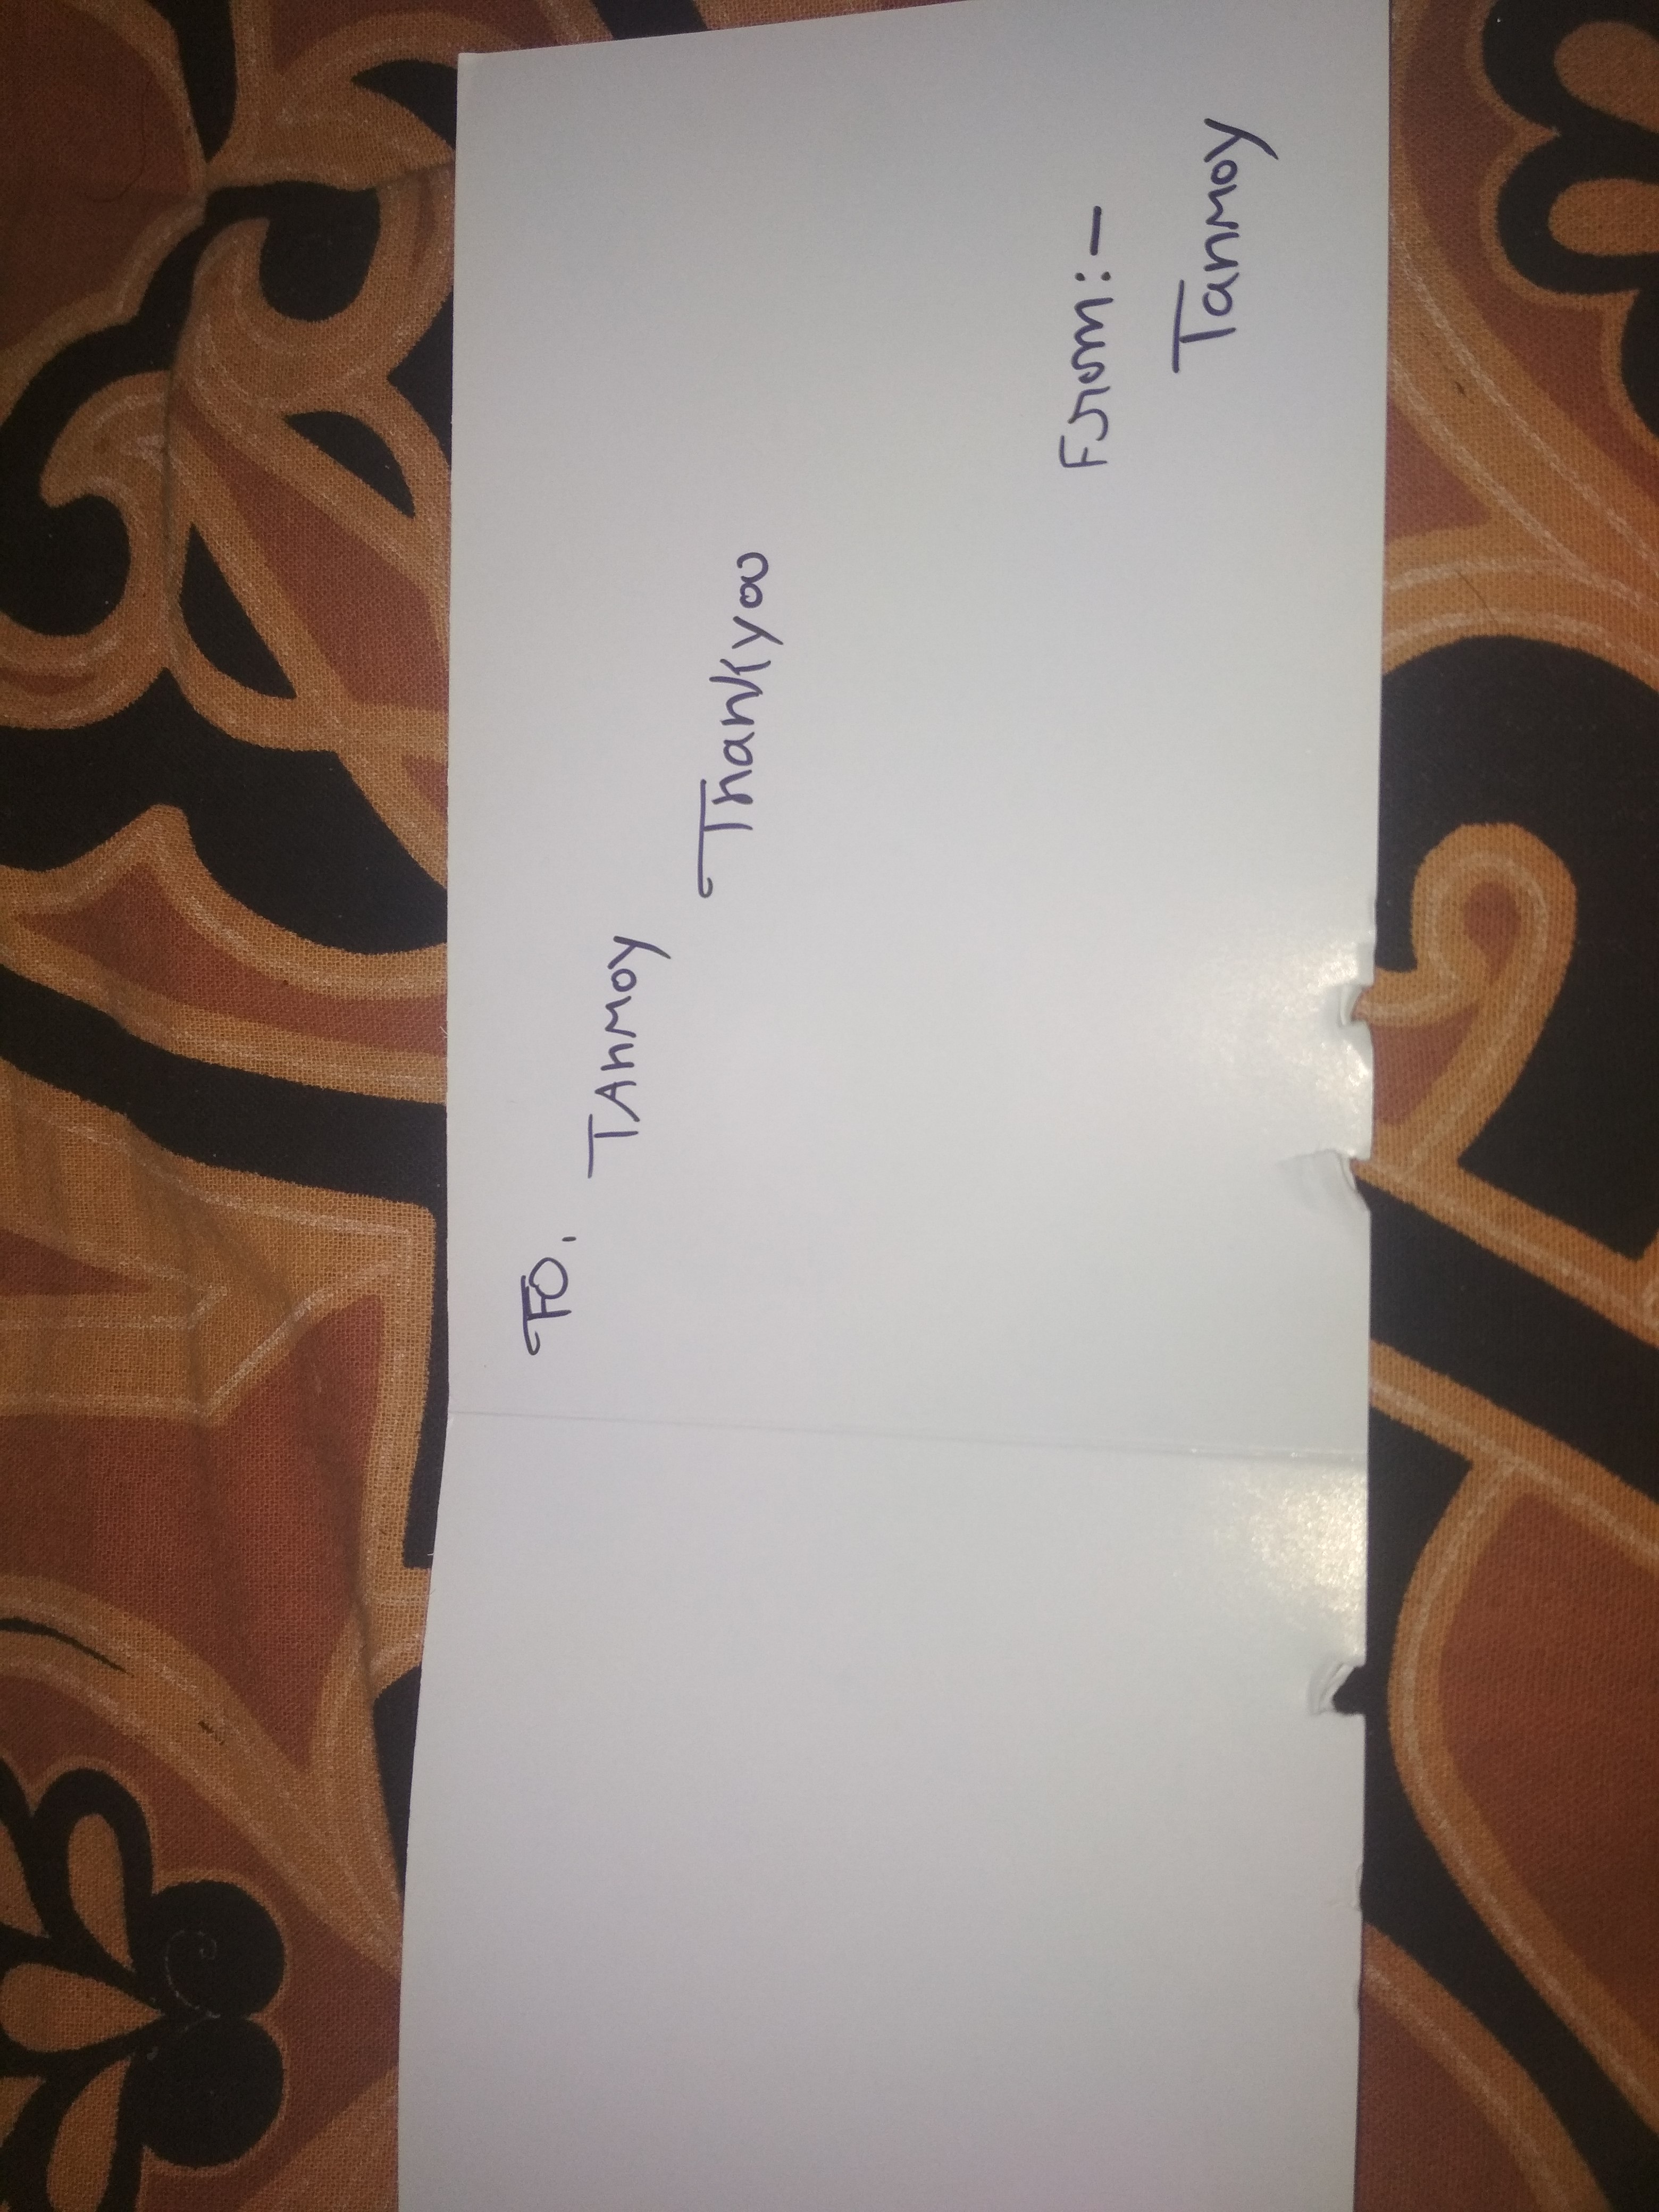 TO,
TAnmoy
Thankyou
From:-
Tanmoy